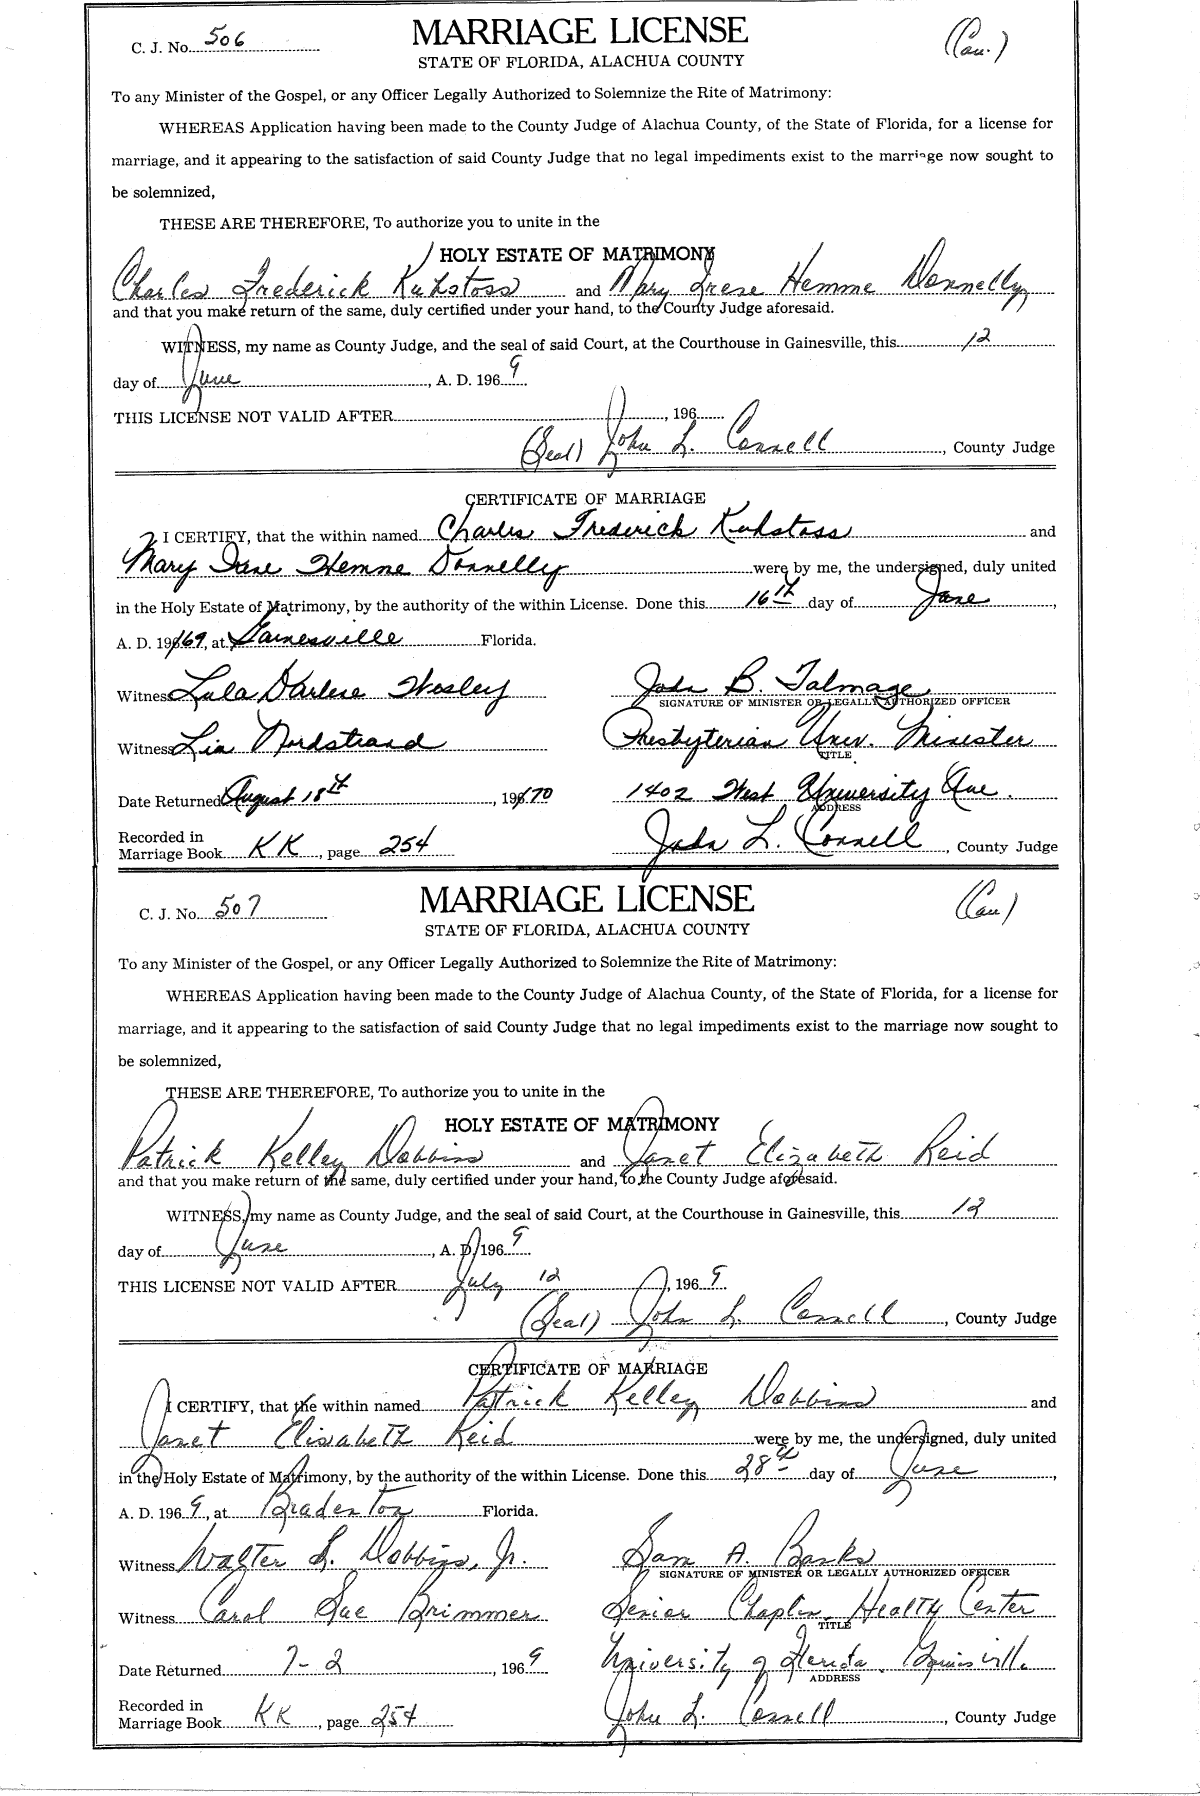 C. J. No. 506
MARRIAGE LICENSE
(Cau.)
STATE OF FLORIDA, ALACHUA COUNTY
To any Minister of the Gospel, or any Officer Legally Authorized to Solemnize the Rite of Matrimony:
WHEREAS Application having been made to the County Judge of Alachua County, of the State of Florida, for a license for
marriage, and it appearing to the satisfaction of said County Judge that no legal impediments exist to the marriage now sought to
be solemnized,
THESE ARE THEREFORE, To authorize you to unite in the
HOLY ESTATE OF MATRIMONY
Charles Frederick Kuhstoss and Mary Irene Hemme Donnelly
and that you make return of the same, duly certified under your hand, to the County Judge aforesaid.
WITNESS, my name as County Judge, and the seal of said Court, at the Courthouse in Gainesville, this 12
day of June, A. D. 1969
THIS LICENSE NOT VALID AFTER , 196
(Seal) John L. Connell, County Judge
CERTIFICATE OF MARRIAGE
I CERTIFY, that the within named Charles Frederick Kuhstoss and
Mary Irene Hemme Donnelly were by me, the undersigned, duly united
in the Holy Estate of Matrimony, by the authority of the within License. Done this 16th day of June,
A. D. 1969, at Gainesville Florida.
Witness Lula Darlene Hosley
John B. Talmage
SIGNATURE OF MINISTER OR LEGALLY AUTHORIZED OFFICER
Witness Lia Nordstrand
Presbyterian Univ. Minister
TITLE
Date Returned August 18th, 1970
1402 West University Ave.
ADDRESS
Recorded in
Marriage Book KK, page 254
John L. Connell, County Judge
C. J. No. 507
MARRIAGE LICENSE
(Cau)
STATE OF FLORIDA, ALACHUA COUNTY
To any Minister of the Gospel, or any Officer Legally Authorized to Solemnize the Rite of Matrimony:
WHEREAS Application having been made to the County Judge of Alachua County, of the State of Florida, for a license for
marriage, and it appearing to the satisfaction of said County Judge that no legal impediments exist to the marriage now sought to
be solemnized,
THESE ARE THEREFORE, To authorize you to unite in the
HOLY ESTATE OF MATRIMONY
Patrick Kelley Dobbins and Janet Elizabeth Reid
and that you make return of the same, duly certified under your hand, to the County Judge aforesaid.
WITNESS, my name as County Judge, and the seal of said Court, at the Courthouse in Gainesville, this 12
day of June, A. D. 1969
THIS LICENSE NOT VALID AFTER July 12, 1969
(Seal) John L. Connell, County Judge
CERTIFICATE OF MARRIAGE
I CERTIFY, that the within named Patrick Kelley Dobbins and
Janet Elisabeth Reid were by me, the undersigned, duly united
in the Holy Estate of Matrimony, by the authority of the within License. Done this 28th day of June,
A. D. 1969, at Bradenton Florida.
Witness Walter L. Dobbins, Jr.
Sam A. Banks
SIGNATURE OF MINISTER OR LEGALLY AUTHORIZED OFFICER
Witness Carol Sue Brimmer
Senior Chaplin Health Center
TITLE
Date Returned 7-2, 1969
University of Florida, Gainsville
ADDRESS
Recorded in
Marriage Book KK, page 254
John L. Connell, County Judge